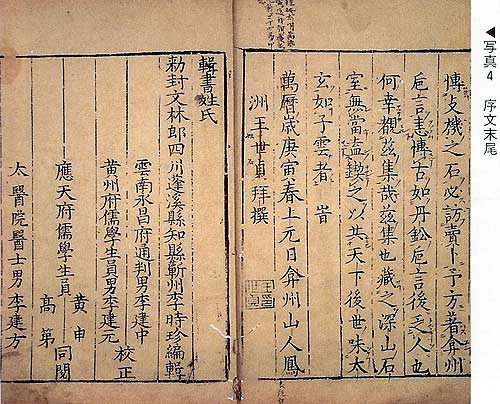 ◀写真4 序文末尾
愽支機之石必訪賣卜予方著弇州
巵言恚愽古如丹鉛巵言後乏人也
何幸覩茲集哉茲集也藏之深山石
室無當盍鍥之以共天下後世味太
玄如子雲者 旹
萬曆歲庚寅春上元日弇州山人鳳
洲王世貞拜撰
輯書姓氏
勑封文林郎四川蓬溪縣知縣蘄州李時珍編輯
雲南永昌府通判男李建中
黃州府儒學生員男李建元
校正
應天府儒學生員
黃申
高第
同閱
太醫院醫士男李建方